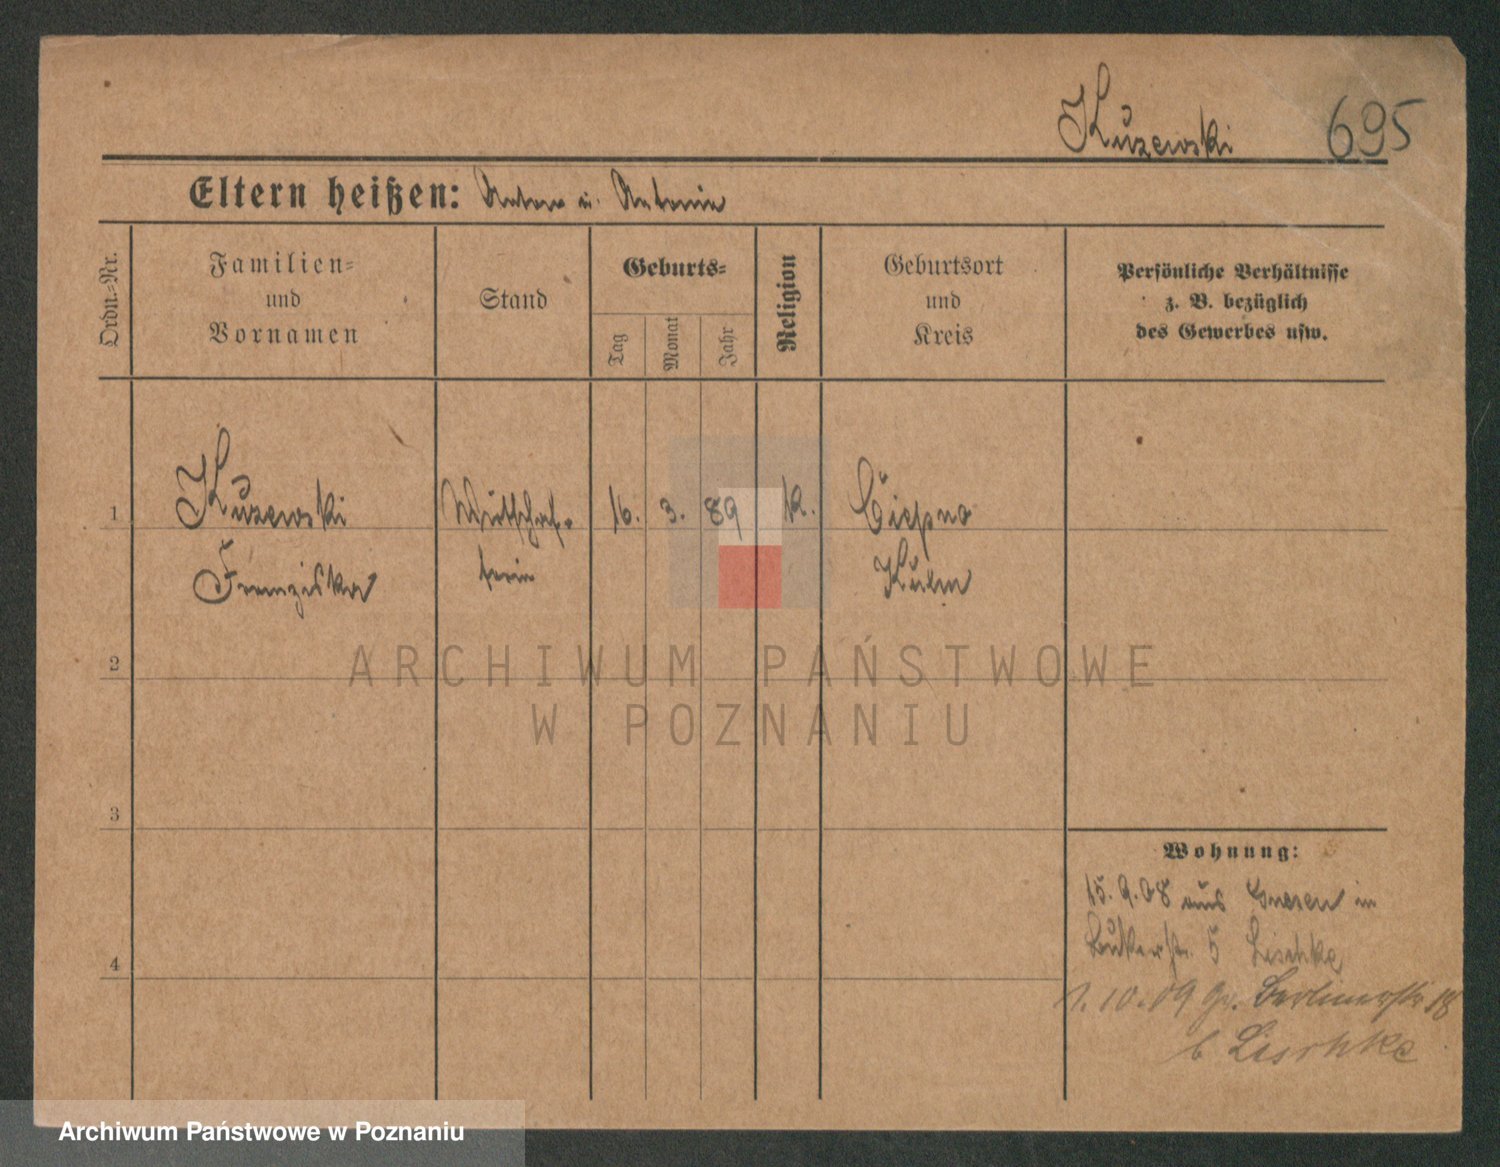 Kużewski 695
Eltern heißen: Anton u. Antonie
Ordn.-Nr.
Familien-
und
Vornamen
Stand
Geburts-
Tag
Monat
Jahr
Religion
Geburtsort
und
Kreis
Persönliche Verhältnisse
z. B. bezüglich
des Gewerbes usw.
1
Kużewski
Franziska
Wirtschaf-
terin
16. 3. 89
Ciepno
Kulm
2
ARCHIWUM PAŃSTWOWE
W POZNANIU
3
4
Wohnung:
15.9.08 aus Gnesen in
Bukerstr. 5 Lischke
1.10.09 Gr. Berlinerstr 18
b Lischke
Archiwum Państwowe w Poznaniu